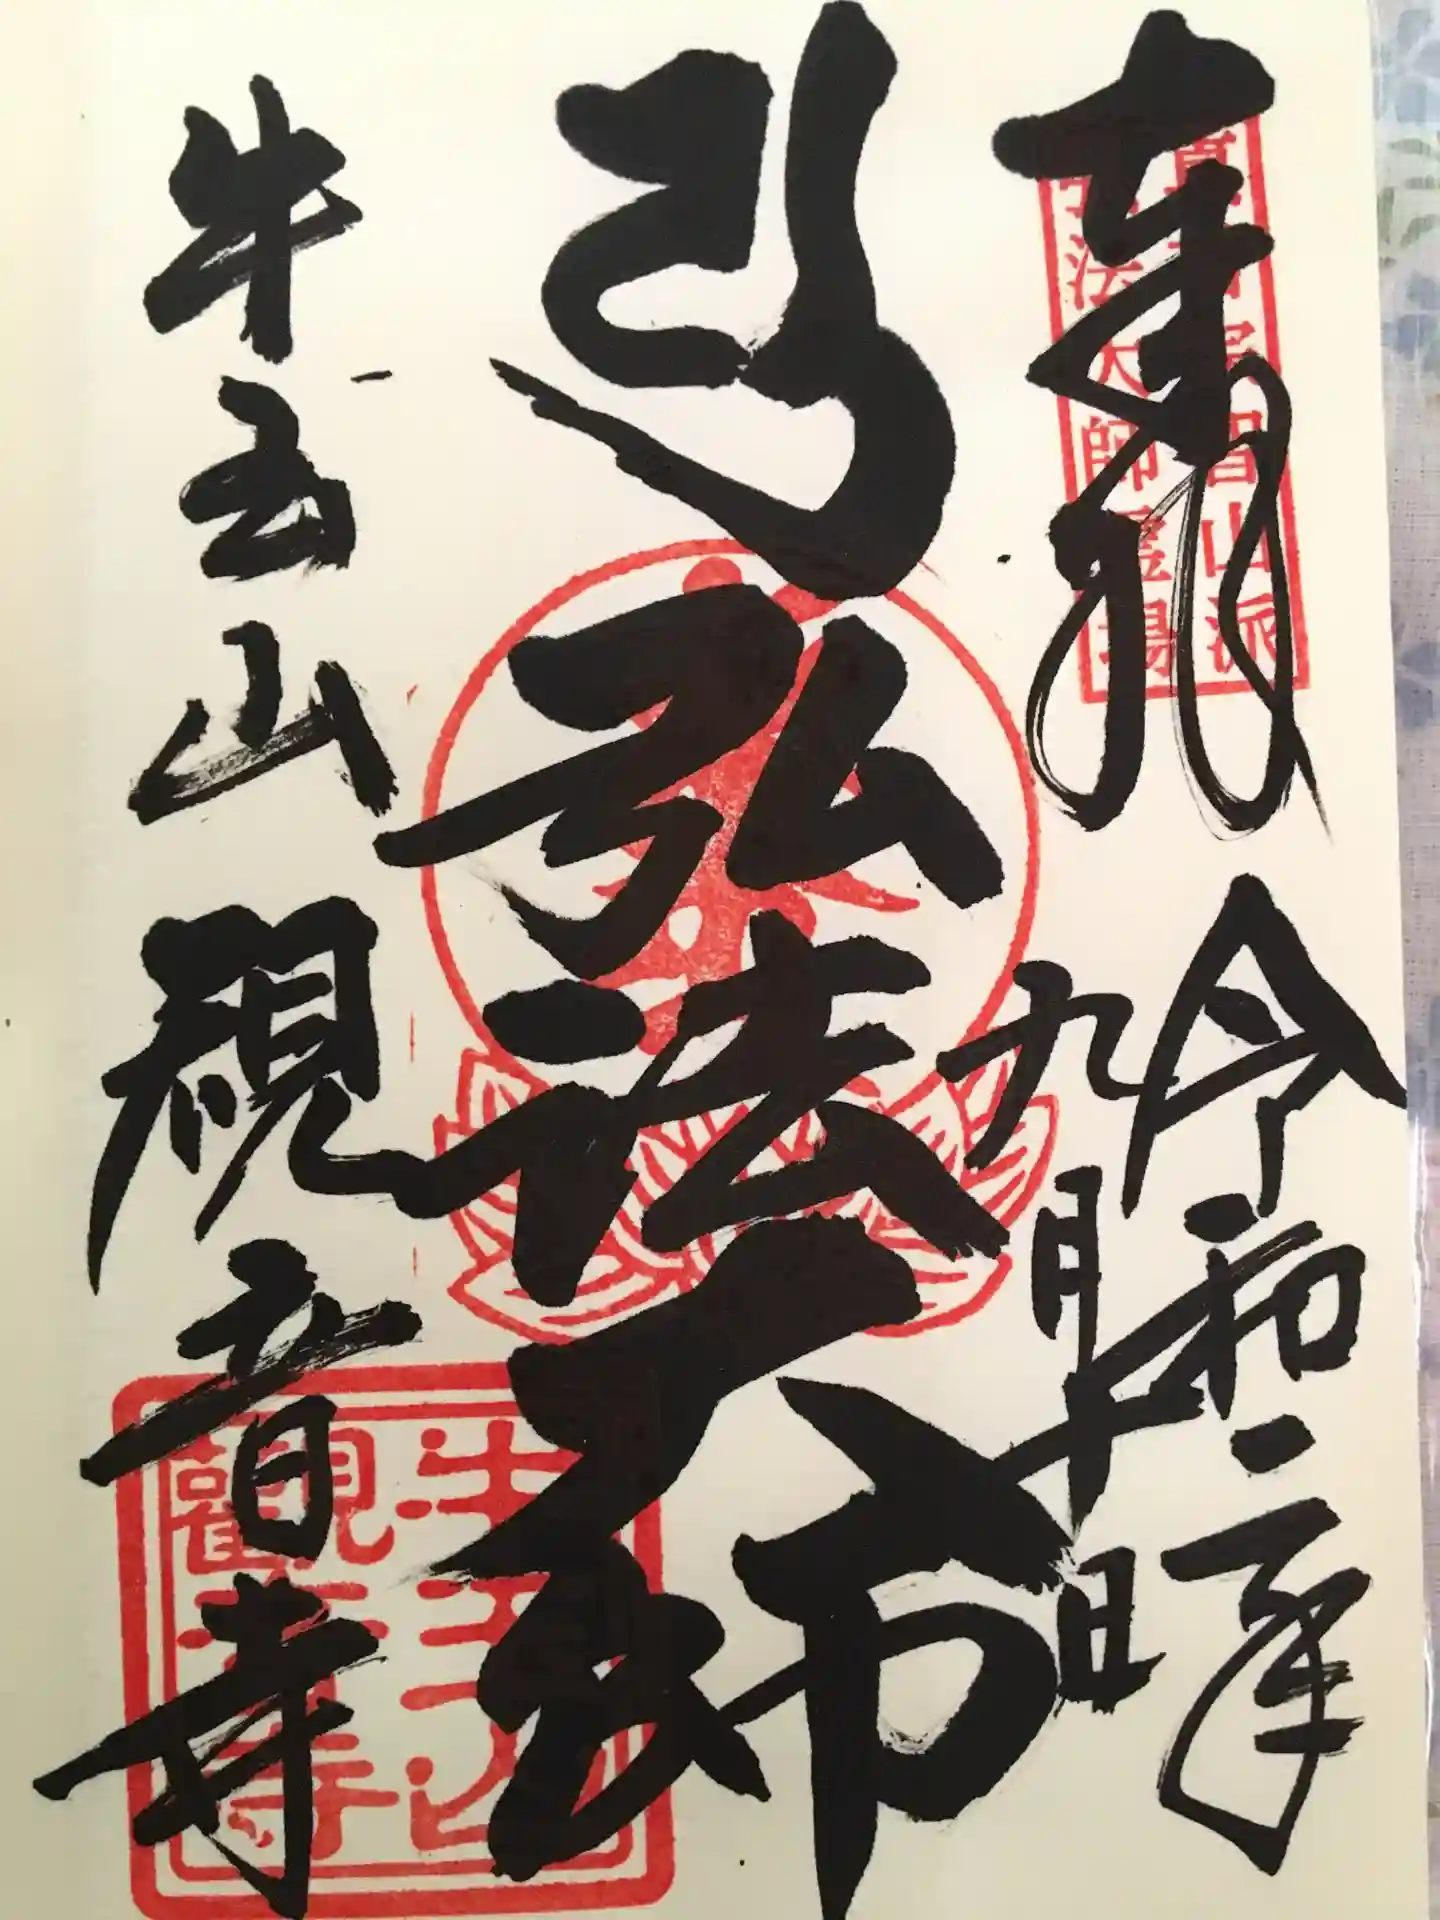 真言宗智山派
弘法大師霊場
奉拝
令和二年
九月十日
弘法大師
牛玉山 観音寺
牛玉山
觀音寺